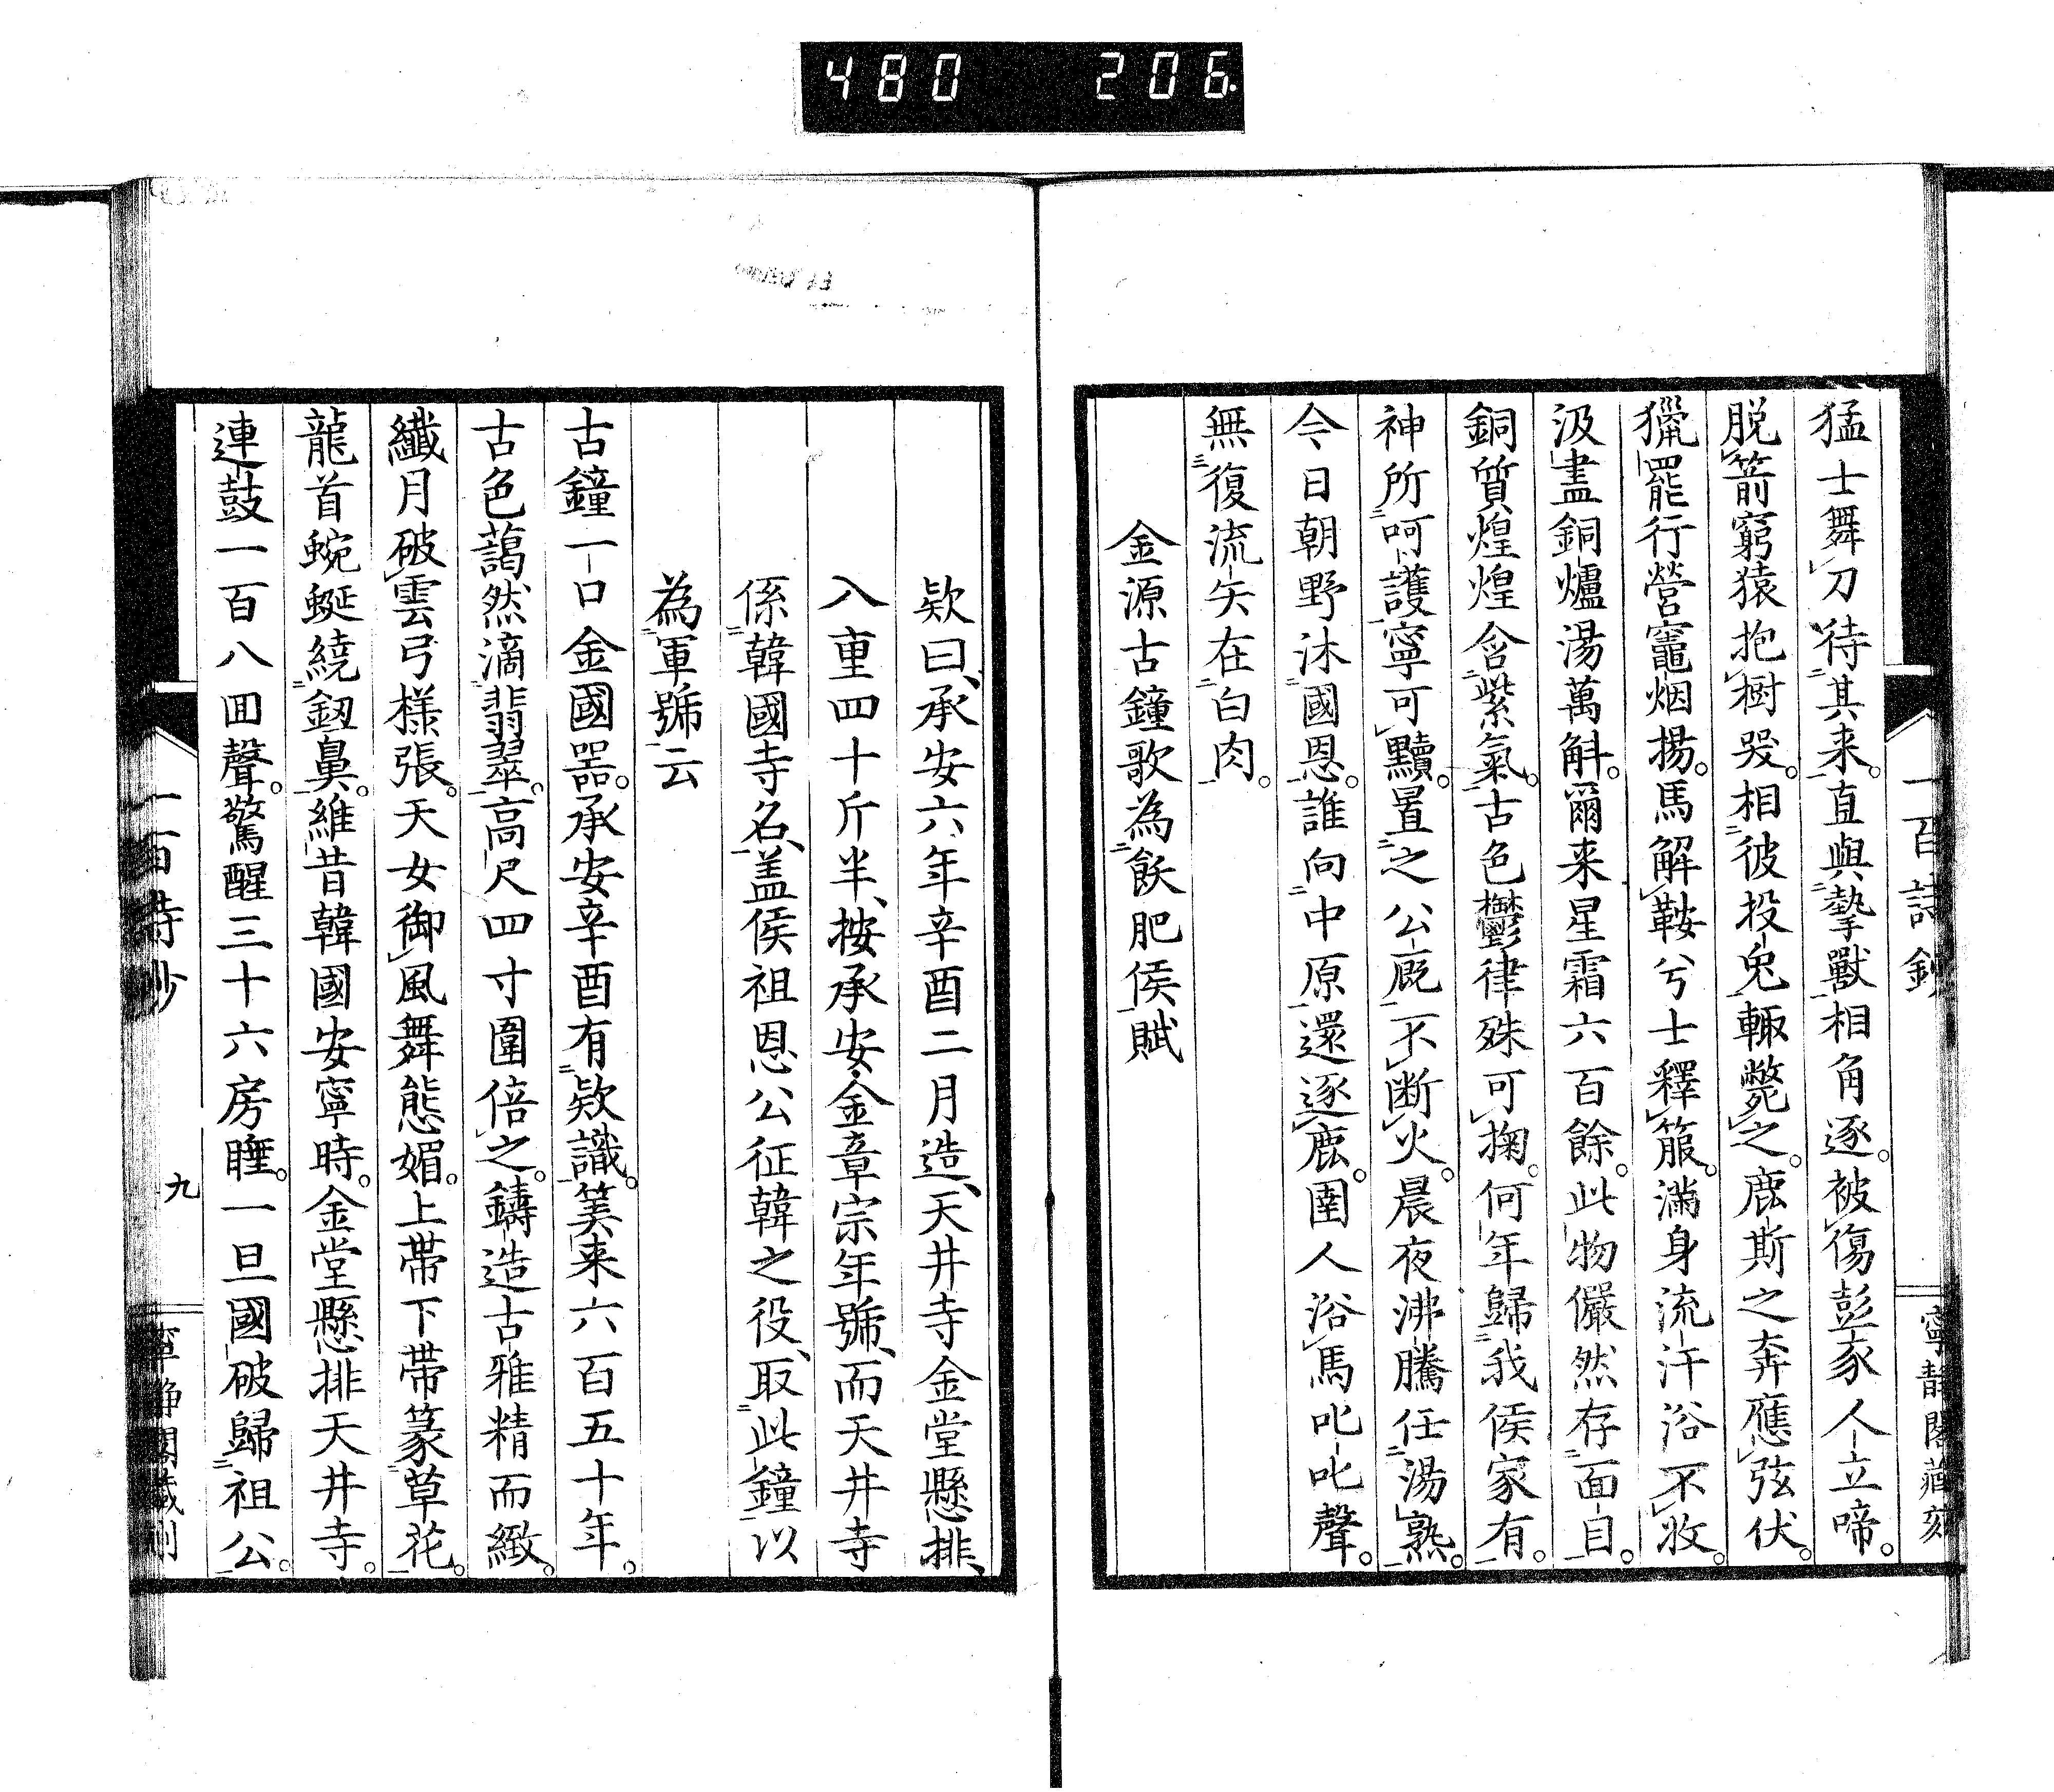 480 206
一百詩鈔
寧靜閣藏刻
猛士舞刀待其来。直與摯獸相角逐。被傷彭豕人立啼。
脱箭窮猿抱樹哭。相彼投兎輙斃之。鹿斯之奔應弦伏。
獵罷行營竈烟揚。馬解鞍兮士釋箙。滿身流汗浴不收。
汲盡銅爐湯萬斛。爾来星霜六百餘。此物儼然存面目。
銅質煌煌含紫氣。古色鬱律殊可掬。何年歸我侯家有。
神所呵護寧可黷。置之公厩不断火。晨夜沸騰任湯熟。
今日朝野沐國恩。誰向中原還逐鹿。圉人浴馬叱叱聲。
無復流矢在白肉。
金源古鐘歌為飫肥侯賦
欵曰、承安六年辛酉二月造、天井寺金堂懸排、
八重四十斤半、按承安、金章宗年號、而天井寺
係韓國寺名、盖侯祖恩公征韓之役、取此鐘以
為軍號云
古鐘一口金國器。承安辛酉有欵識。筭来六百五十年。
古色藹然滴翡翠。高尺四寸圍倍之。鑄造古雅精而緻。
纖月破雲弓様張。天女御風舞態媚。上帶下帶篆草花。
龍首蜿蜒繞釼鼻。維昔韓國安寧時。金堂懸排天井寺。
連鼓一百八囬聲。驚醒三十六房睡。一旦國破歸祖公。
一百詩鈔
九
寧靜閣藏刻